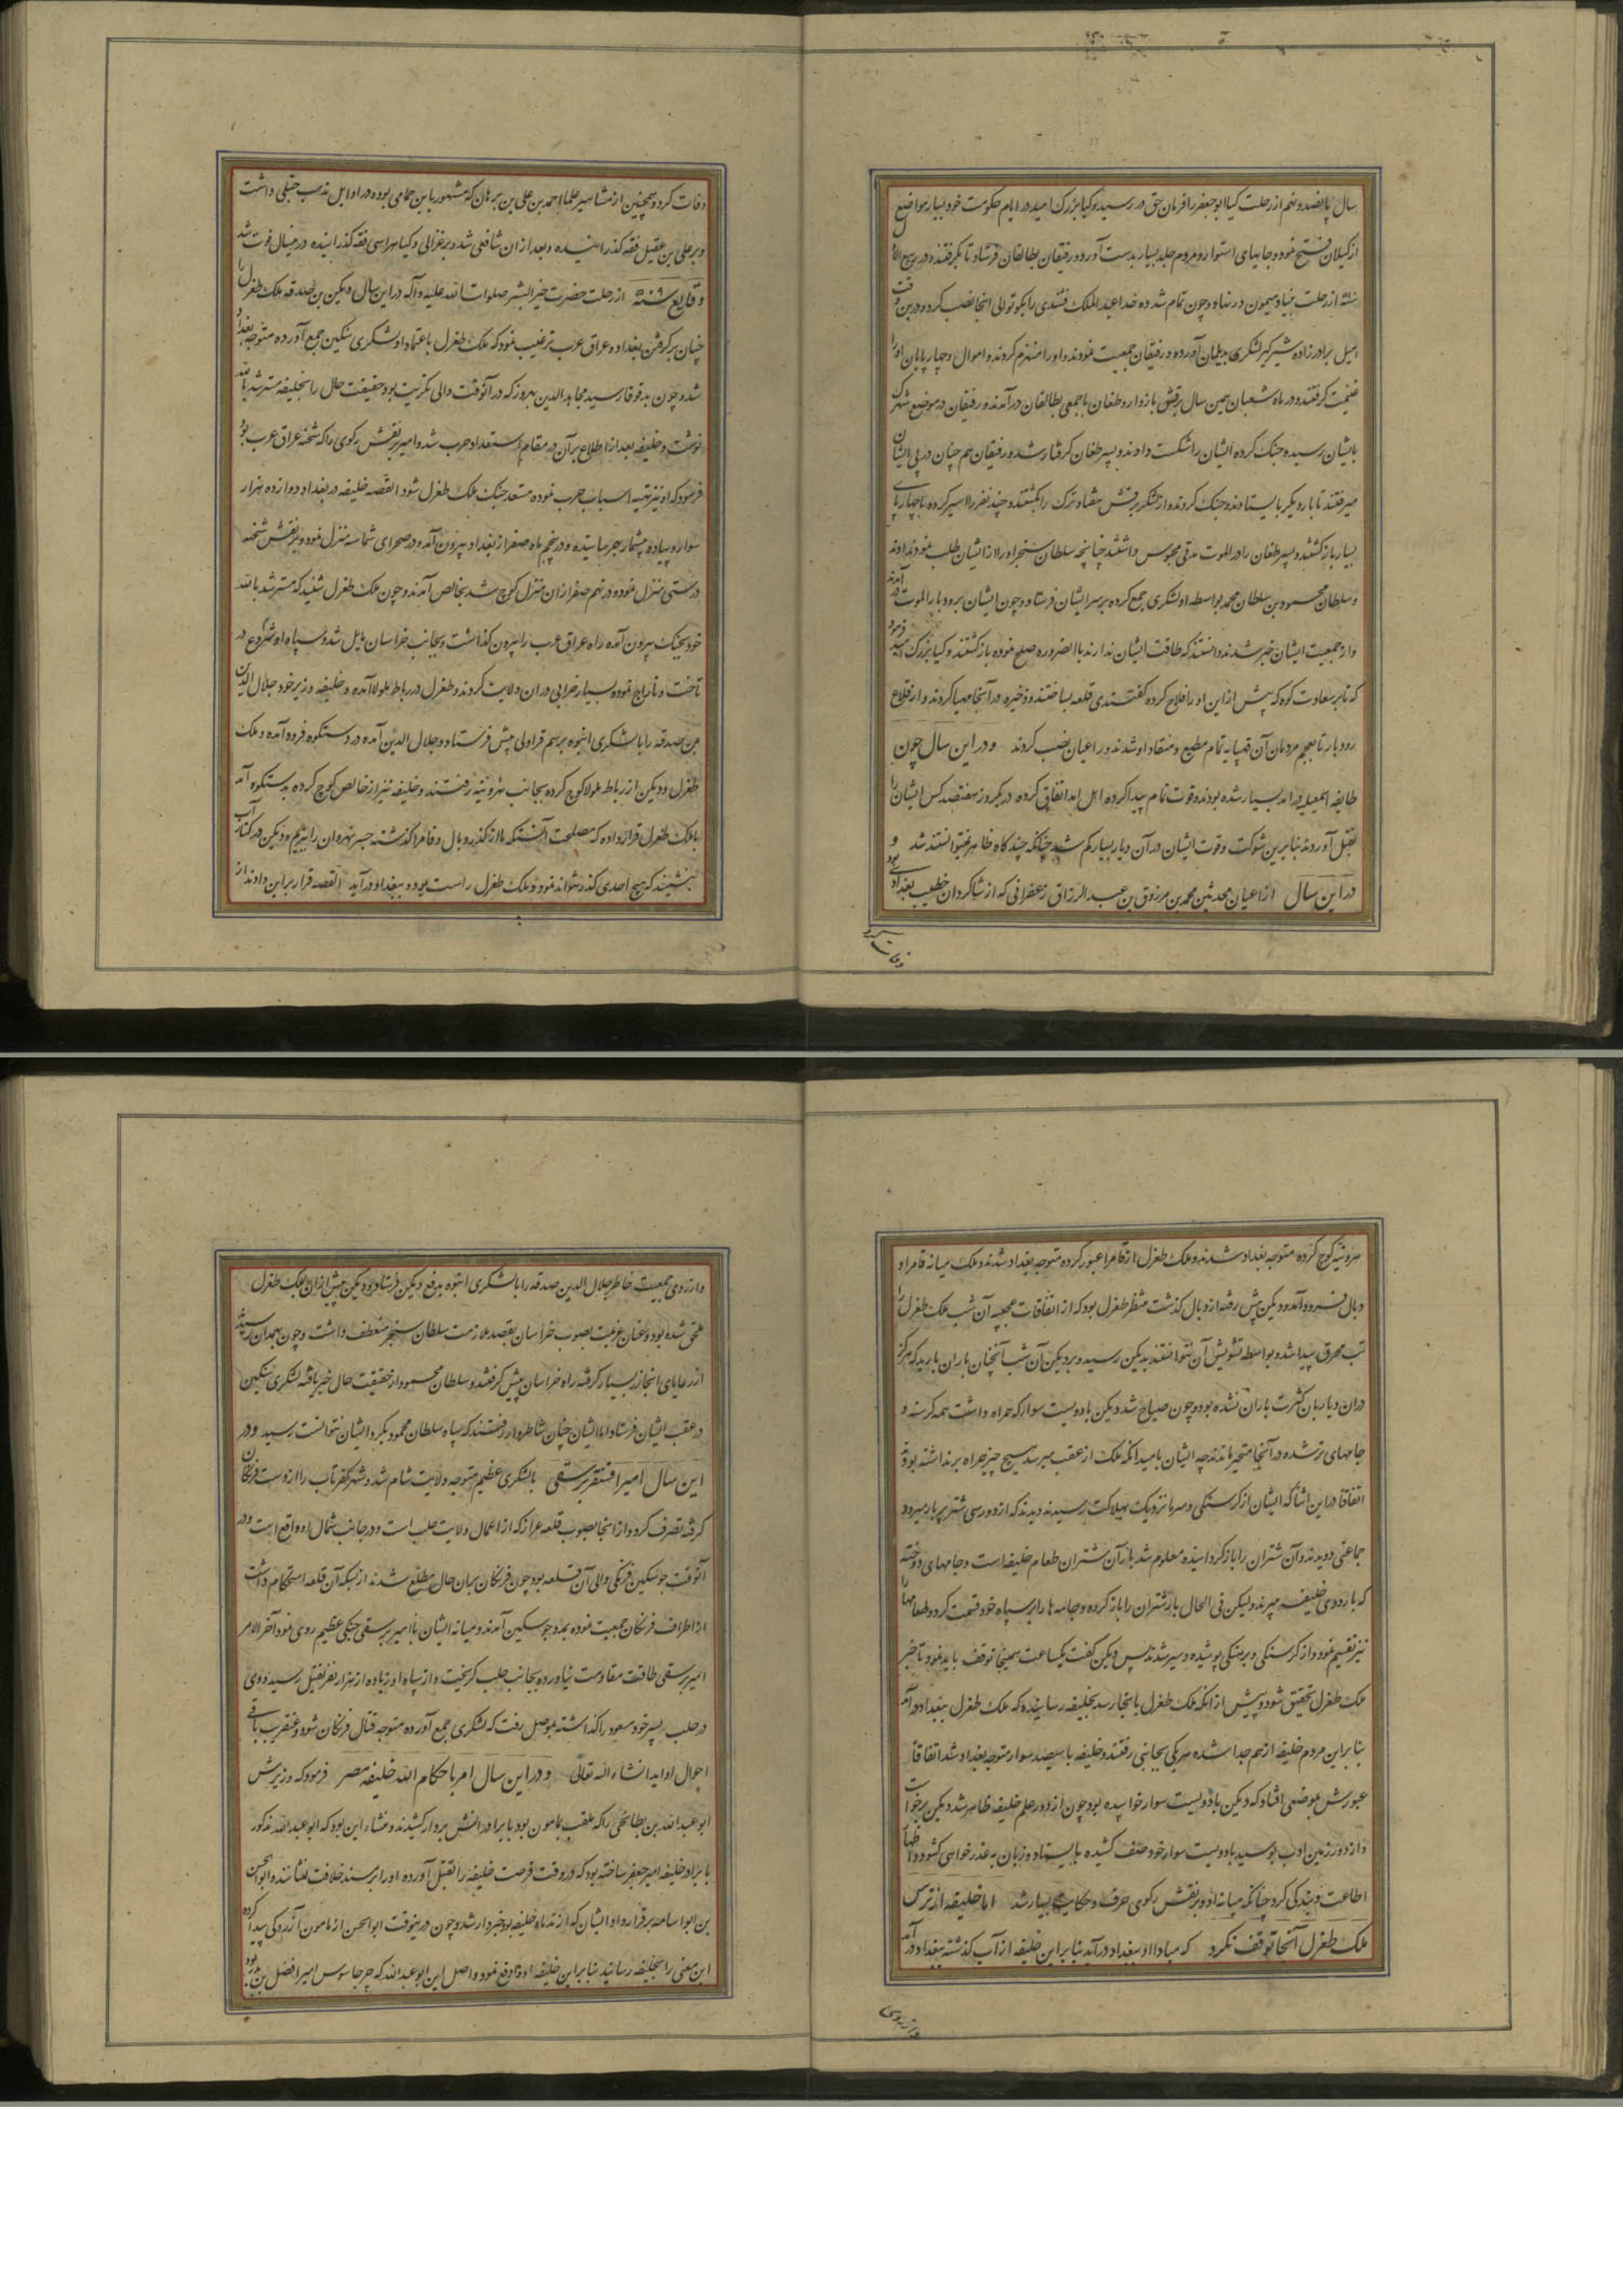 سال پانصد و نهم از رحلت کیا ابو جعفر را فرمان حق در رسید و کیا بزرک امید در ایام حکومت خود بسیار مواضع
از کیلان فتح نمود و جایهای استوار و مردم جلد بسیار بدست آورد و رفیقان بطالقان فرستاد تا بگرفتند و در ربیع الآ
از رحلت بنیاد میمون در نهاد و چون تمام شد ده خدا عبد الملک فشندی را بکوتوالی انجا نصب کرد و درین وقت
برادرزاده شیرکیر لشکری بدیلمان آورده و رفیقان جمعیت نمودند و او را منهزم کردند و اموال و چهارپایان او را
غنیمت کرفتند و در ماه شعبان همین سال برنقش بازدار و طغان با جمعی بطالقان در آمدند و رفیقان در موضع شهرک
بایشان رسیده جنک کرده ایشان را شکست دادند و پسر طغان کرفتار شد و رفیقان هم چنان در پی ایشان
میرفتند تا بار دیکر بایستادند و جنک کردند و از لشکر برنقش هفتاد ترک را بکشتند و چند نفر را اسیر کرده با چهارپای
بسیار بازکشتند و پسر طغان را در الموت مدتی محبوس داشتند چنانچه سلطان سنجر او را از ایشان طلب نمود ندادند
و سلطان محمود بن سلطان محمد بواسطه او لشکری جمع کرده بر سر ایشان فرستاد و چون ایشان برودبار الموت در آمدند
و از جمعیت ایشان خبر شدند دانستند که طاقت ایشان ندارند بالضروره صلح نموده بازکشتند و کیا بزرک امید فرمود
که تا بر سعادت کوه که پیش از این او را فلاح کرده کفتندی قلعه بساختند و ذخیره در آنجا مهیا کردند و از قلاع
رودبار تا بعجم مردمان آن قهپایه تمام مطیع و منقاد او شدند و راعیان نصب کردند و در این سال چون
طایفه اسمعیلیه در امد بسیار شده بودند و قوت تمام پیدا کرده اهل امد اتفاق کرده در یکروز هفتصد کس ایشان را
بقتل آوردند بنابرین شوکت و قوت ایشان در آن دیار بسیار کم شد چنانکه چند کاه ظاهر نمیتوانستند شد و
در این سال از اعیان محدثین محمد بن مرزوق بن عبد الرزاق زعفرانی که از شاکردان خطیب بغدادی بود
وفات کرد
وفات کرد و همچنین از مشاهیر علما احمد بن علی بن برهان که مشهور بابن حمامی بوده در اوایل مذهب حنبلی داشت
و بر علی بن عقیل فقه کذرانیده و بعد از ان شافعی شد و بر غزالی و کیا هراسی فقه کذرانیده درینسال فوت شد
وقایع سنه ۵۰۹ از رحلت حضرت خیر البشر صلوات الله علیه و آله در این سال دبیکن بن صدقه ملک طغرل را
چنان بر کرفتن بغداد و عراق عرب ترغیب نمود که ملک طغرل باعتماد او لشکری سنکین جمع آورده متوجه بغداد
شد و چون بدقوقا رسید مجاهد الدین بهروز که در آنوقت والی تکریت بود حقیقت حال را بخلیفه مسترشد بالله
نوشت و خلیفه بعد از اطلاع بر آن در مقام استعداد حرب شد و امیر برنقش زکوی را که شحنه عراق عرب بود
فرمود که او نیز تهیه اسباب حرب نموده مستعد جنک ملک طغرل شود القصه خلیفه در بغداد دوازده هزار
سوار و پیاده بیشمار بهم رسانیده و در پنجم ماه صفر از بغداد بیرون آمد و در صحرای شماسه منزل نمود و برنقش شحنه
در منزل نمود و در نهم صفر از ان منزل کوچ شد بخالص آمدند و چون ملک طغرل شنید که مسترشد بالله
خود بجنک بیرون آمده راه عراق عرب را بیرون کذاشت و بجانب خراسان مایل شد و سپاه او شروع در
تاخت و تاراج نموده بسیار خرابی در ان ولایت کردند و طغرل در رباط جلولا آمده و خلیفه وزیر خود جلال الدین
بن صدقه را با لشکری انبوه برسم قراولی پیش فرستاد و جلال الدین آمده در دستکوه فرود آمده و ملک
طغرل و دبیکن از رباط جلولا کوچ کرده بجانب نهروانیه رفتند و خلیفه نیز از خالص کوچ کرده بدستکوه آمد
با ملک طغرل قرار داده که مصلحت آنستکه ما از کذر دیال و قامرا کذشته جسر نهروان را ببریم و دبیکن در کنار آب
بنشیند که هیچ احدی کذر نتواند نمود و ملک طغرل راست برود و ببغداد در آید القصه قرار بر این دادند از
نهروانیه کوچ کرده متوجه بغداد شدند و ملک طغرل از قامرا عبور کرده متوجه بغداد شدند و ملک میانه قامرا و
دیال فرود آمد و دبیکن پیش رفته از دیال کذشت منتظر طغرل بود که از اتفاقات عجیبه آن شب ملک طغرل را
تب محرق پیدا شد و بواسطه تشویش آن نتوانستند بدبیکن رسید و بر دبیکن آن شب آنچنان باران بارید که هرکز
دران دیار بان کثرت باران نشده بود و چون صباح شد دبیکن با دویست سوار که همراه داشت همه کرسنه و
جامهای تر شده در آنجا متحیر ماندند چه ایشان بامید انکه ملک از عقب میرسد هیچ چیز همراه برنداشته بودند
اتفاقا در این اثنا که ایشان از کرسنکی و سرما نزدیک بهلاکت رسیدند دیدند که از دور سی شتر پر بار میرود
جماعتی دویدند و آن شتران را بازکردانیده معلوم شد بار آن شتران طعام خلیفه است و جامهای دوخته
که باردوی خلیفه میبرند دبیکن فی الحال بار شتران را باز کرده و جامه ها را بر سپاه خود قسمت کرد و طعامها را
نیز تقسیم نمود و از کرسنکی و برهنکی پوشیده و سیر شدند پس دبیکن کفت یکساعت همینجا توقف باید نمود تا خبر
ملک طغرل تحقیق شود و پیش از انکه ملک طغرل بانجا رسد بخلیفه رسانیدند که ملک طغرل ببغداد در آمد
بنابراین مردم خلیفه از هم جدا شده هر یکی بجانبی رفتند و خلیفه با سیصد سوار متوجه بغداد شد اتفاقا
عبورش بموضعی افتاد که دبیکن با دویست سوار خوابیده بود چون از دور علم خلیفه ظاهر شد دبیکن برخواست
و از دور زمین ادب بوسید با دویست سوار خود صف کشیده بایستاد و زبان بعذر خواهی کشود و اظهار
اطاعت و بندکی کرد چنانکه میانه او و برنقش زکوی حرف و حکایت بسیار شد اما خلیفه از ترس
ملک طغرل آنجا توقف نکرد که مبادا او ببغداد در آید بنابراین خلیفه از آب کذشته ببغداد در آمد
و ارزوی
و ارزوی جمعیت خاطر جلال الدین صدقه را با لشکری انبوه بدفع دبیکن فرستاد و دبیکن پیش از ان بملک طغرل
ملحق شده بود و عنان عزیمت بصوب خراسان بقصد ملازمت سلطان سنجر منعطف داشت و چون بهمدان رسید
از رعایای انجا زر بسیار کرفته راه خراسان پیش کرفتند و سلطان محمود از حقیقت حال خبر یافته لشکری سنکین
در عقب ایشان فرستاد اما ایشان چنان شاطروار رفتند که سپاه سلطان محمود بکرد ایشان نتوانست رسید و در
این سال امیر اقسنقر برسقی با لشکری عظیم متوجه ولایت شام شد و شهر کفرتاب را از دست فرنکان
کرفته تصرف کرد و از انجا بصوب قلعه عزاز که از اعمال ولایت حلب است و در جانب شمال او واقع است و در
آنوقت جوسکین فرنکی والی آن قلعه بود چون فرنکان بران حال مطلع شدند از بسکه آن قلعه استحکام داشت
از اطراف فرنکان جمعیت نموده بمدد جوسکین آمدند و میانه ایشان با امیر برسقی جنکی عظیم روی نمود آخر الامر
امیر برسقی طاقت مقاومت نیاورده بجانب حلب کریخت و از سپاه او زیاده از هزار نفر بقتل رسید و وی
در حلب پسر خود مسعود را کذاشته بموصل رفت که لشکری جمع آورده متوجه قتال فرنکان شود و عنقریب باقی
احوال او اید انشاء الله تعالی و در این سال امر باحکام الله خلیفه مصر فرمود که وزیرش
ابو عبد الله بن بطایحی را که ملقب بمامون بود با برادرانش بردار کشیدند و منشاء این بود که ابو عبد الله مذکور
با برادر خلیفه امیر جعفر ساخته بود که در وقت فرصت خلیفه را بقتل آورده او را بر مسند خلافت نشانند و ابو الحسن
بن ابو اسامه بر قرار داد ایشان که از ندماء خلیفه بود خبردار شد و چون درینوقت ابو الحسن از مامون آزردکی پیدا کرده
این معنی را بخلیفه رسانید بنابراین خلیفه او را دفع نمود و اصل این ابو عبد الله که جاسوس امیر افضل بن بدر بود